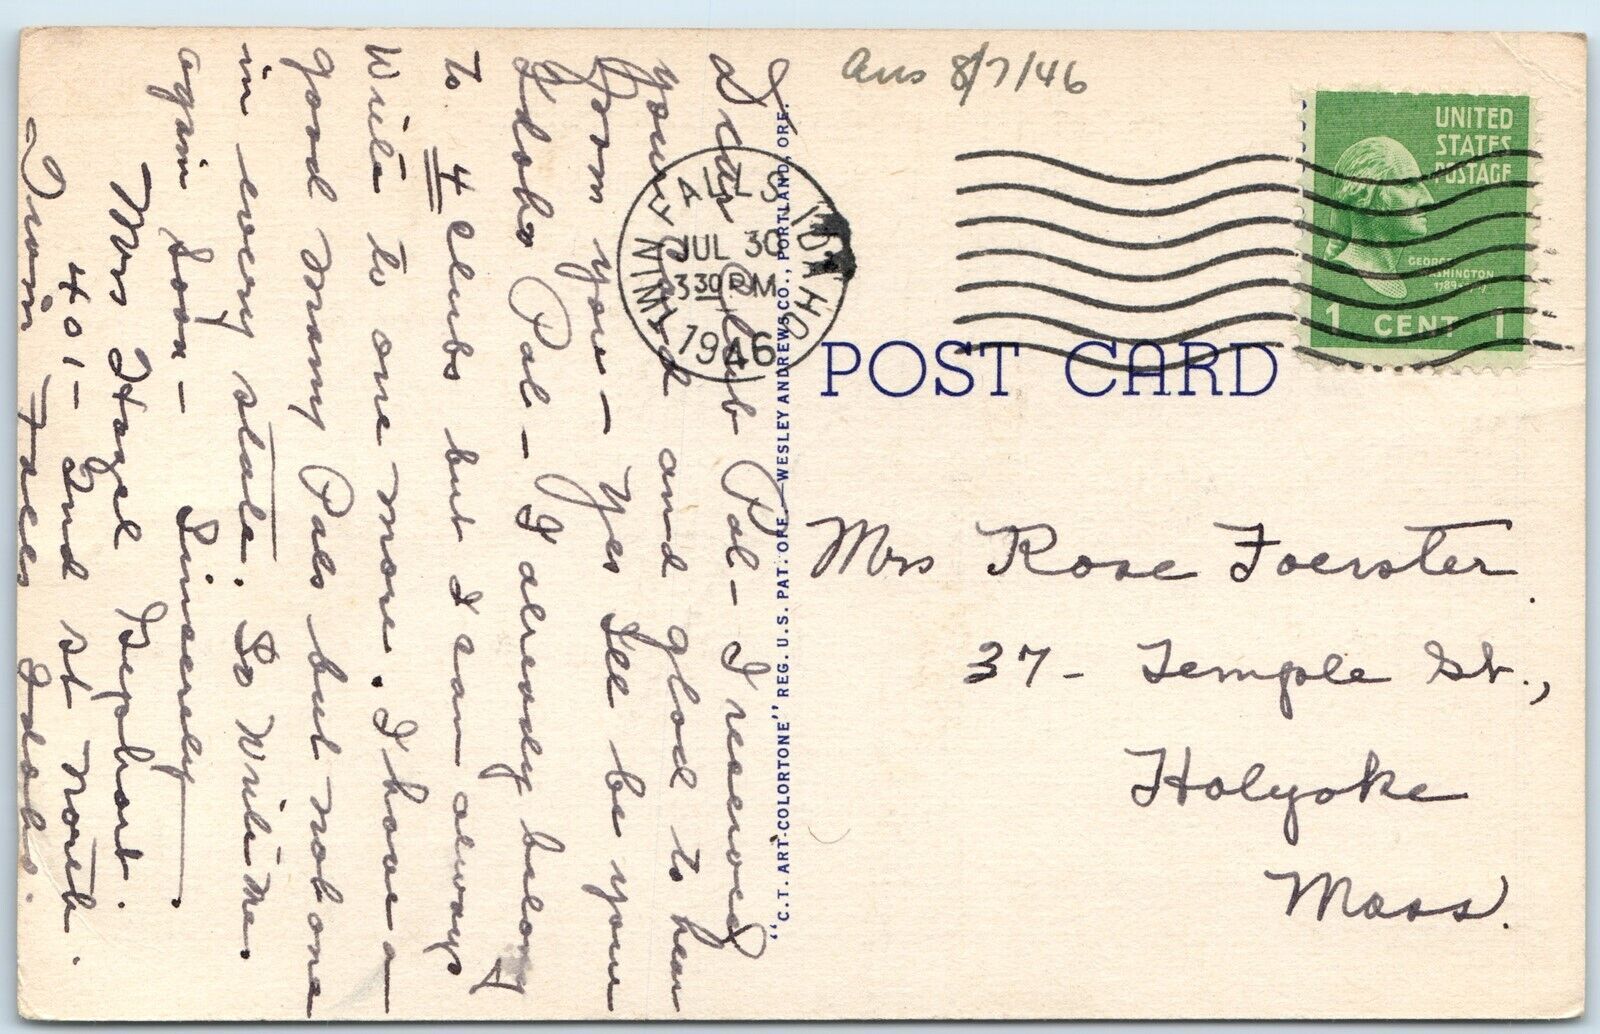 Dear Club Pal - I received
your card and glad to hear
from you - Yes I'll be your
Idaho Pal - I already belong
to 4 clubs but I can always
Write to one more. I have a
good many Pals but not one
in every state. So Write Me
again soon - Sincerely
Mrs Hazel Gephart.
401 - 2nd st North.
Twin Falls Idaho.
Ans 8/7/46
TWIN FALLS IDAHO
JUL 30
3 30 PM
1946
UNITED
STATES
POSTAGE
GEORGE
WASHINGTON
1 CENT 1
POST CARD
"C.T. ART-COLORTONE" REG. U.S. PAT. OFF. WESLEY ANDREWS CO., PORTLAND, ORE.
Mrs Rose Foerster
37 - Temple St.,
Holyoke
Mass.